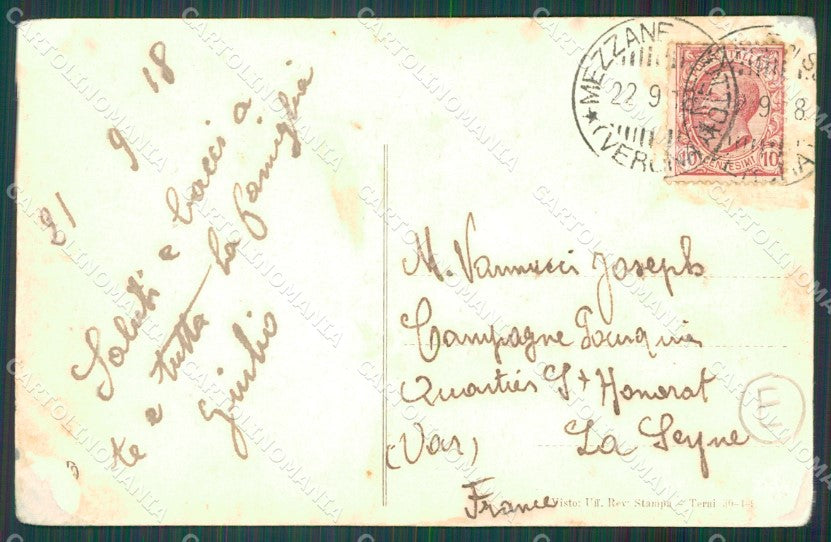 21 9 18
Saluti e bacci a
te e tutta la famiglia
Giulio
MEZZANE
22 9
(VERONA)
CENTESIMI 10
M. Vannucci Joseph
Campagne
Quartiés St Honorat
(Var) La Seyne
France
Visto: Uff. Rev. Stampa - Terni
CARTOLINOMANIA